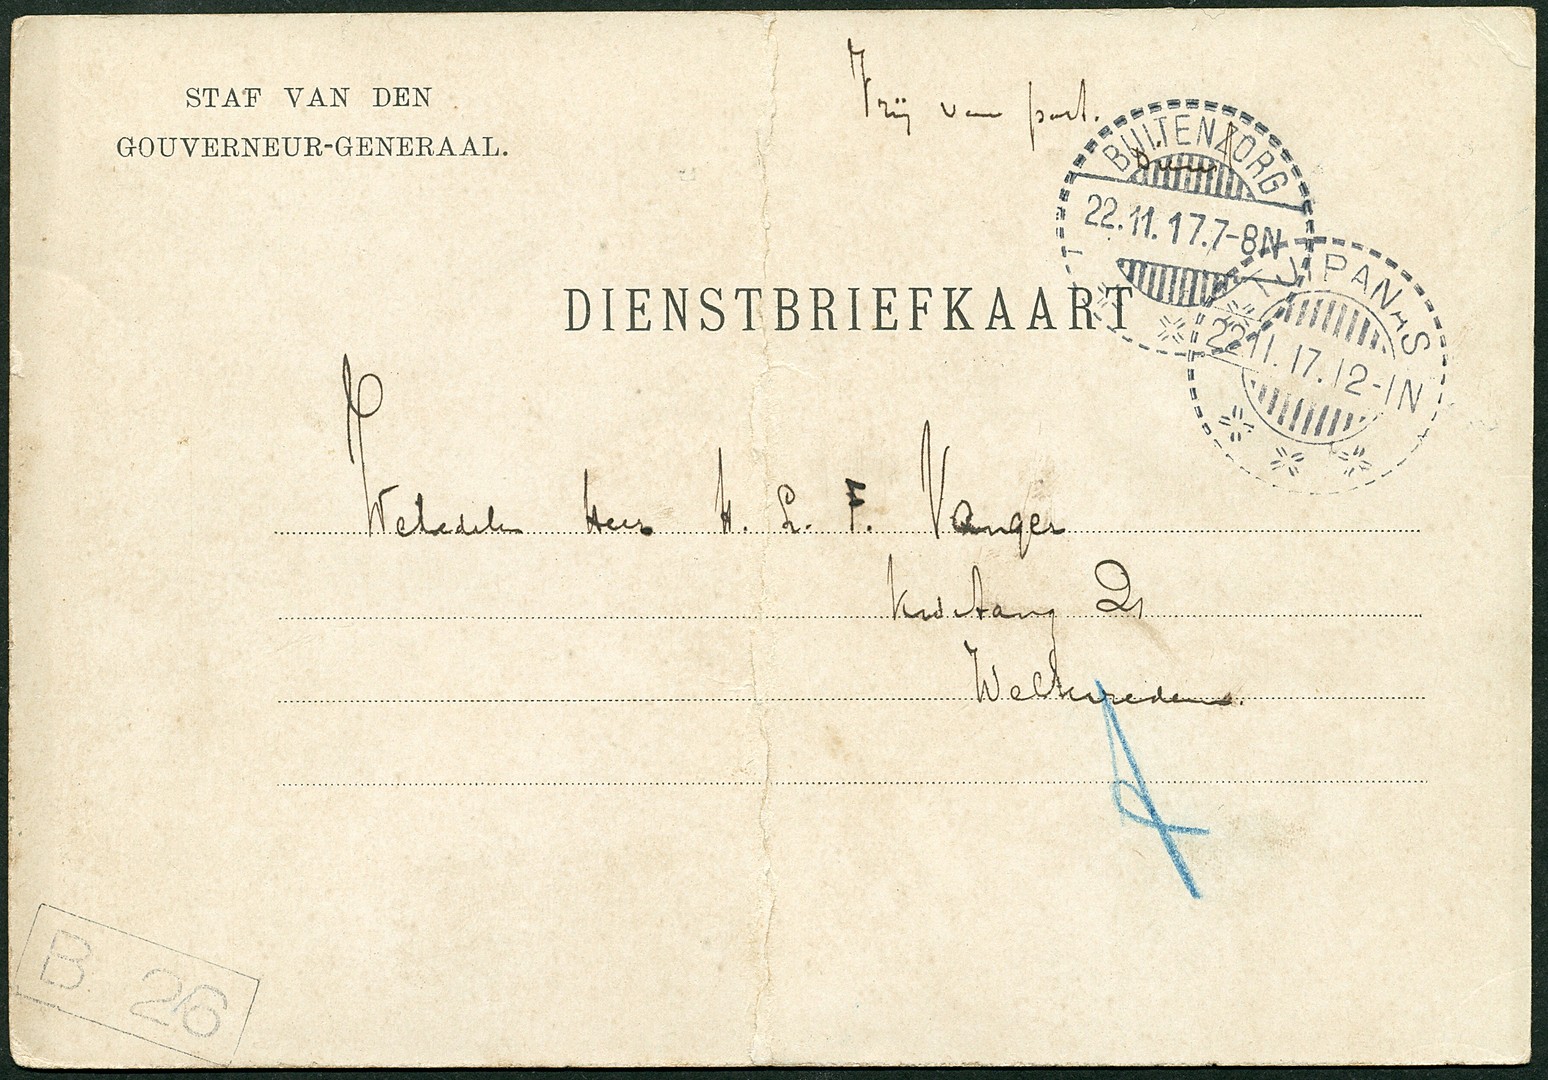 STAF VAN DEN
GOUVERNEUR-GENERAAL.
Vrij van port.
BUITENZORG
22.11.17.7-8N
TJIPANAS
22.11.17.12-1N
DIENSTBRIEFKAART
Weledele Heer H. L. F. Vanger
Kwitang 21
Weltevreden.
B. 26